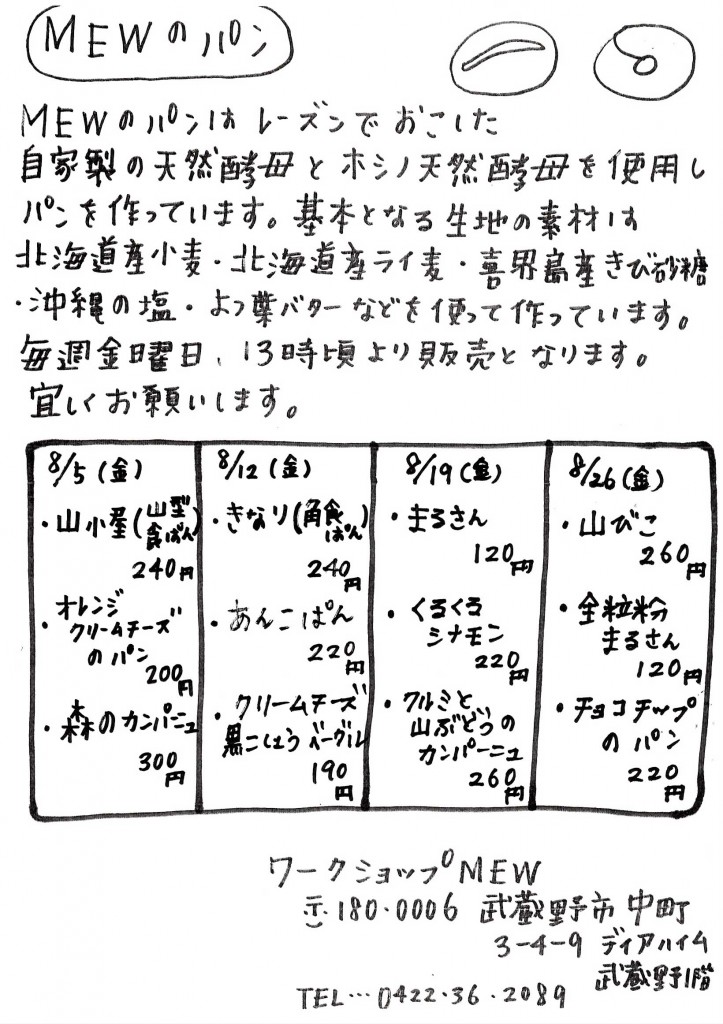 MEWのパン
MEWのパンはレーズンでおこした
自家製の天然酵母とホシノ天然酵母を使用し
パンを作っています。基本となる生地の素材は
北海道産小麦・北海道産ライ麦・喜界島産きび砂糖
・沖縄の塩・よつ葉バターなどを使って作っています。
毎週金曜日、13時頃より販売となります。
宜しくお願いします。
8/5(金)
・山小屋(山型食ぱん)
240円
・オレンジ
クリームチーズ
のパン
200円
・森のカンパーニュ
300円
8/12(金)
・きなり(角食ぱん)
240円
・あんこぱん
220円
・クリームチーズ
黒こしょうベーグル
190円
8/19(金)
・まるさん
120円
・くるくる
シナモン
220円
・クルミと
山ぶどうの
カンパーニュ
260円
8/26(金)
・山びこ
260円
・全粒粉
まるさん
120円
・チョコチップ
のパン
220円
ワークショップMEW
〒180.0006 武蔵野市中町
3-4-9 ディアハイム
武蔵野1階
TEL…0422.36.2089